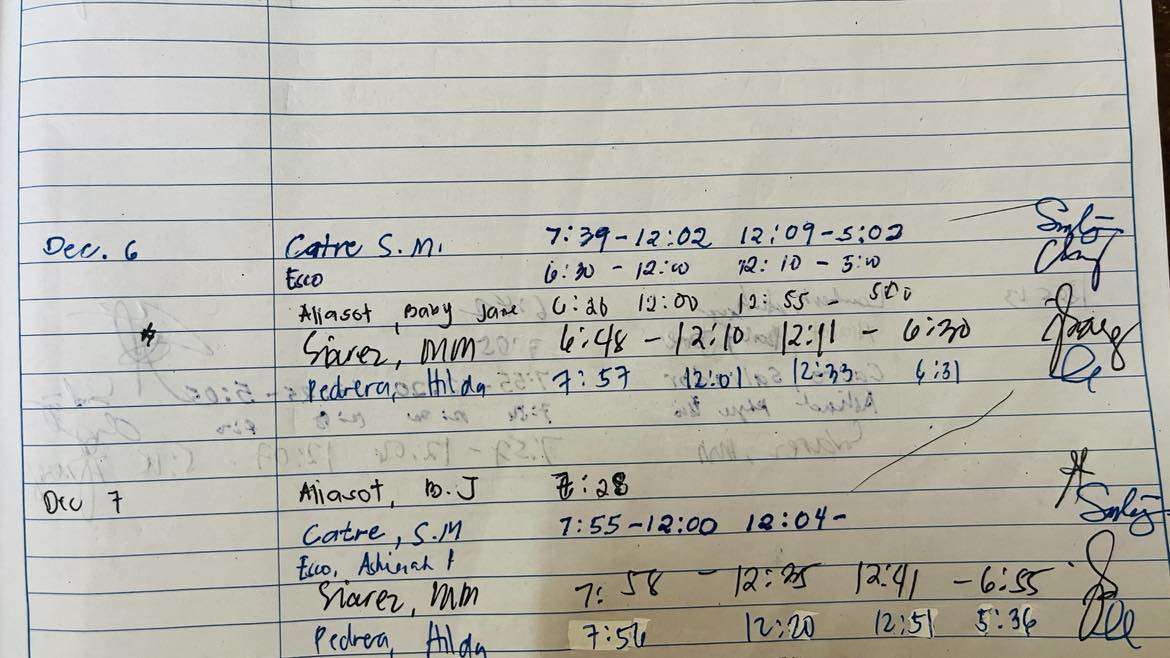 Dec. 6 Catre S.M. 7:39-12:02 12:09-5:02
Esco 6:30 - 12:00 12:10 - 5:00
Aliasot, Baby Jane 6:26 12:00 12:55 - 500
Siarez, MM 6:48 - 12:10 12:11 - 6:30
Pedrera, Hilda 7:57 12:01 12:33 6:31
Dec 7 Aliasot, B.J 7:28
Catre, S.M 7:55-12:00 12:04-
Esco,
Siarez, MM 7:58 - 12:35 12:41 - 6:55
Pedrera, Hilda 7:56 12:20 12:51 5:36